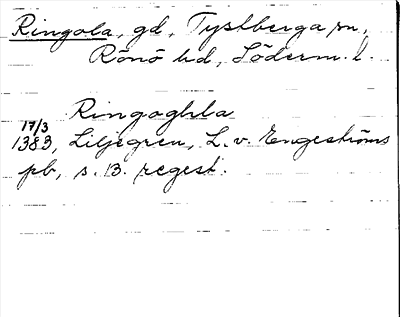 Ringola, gd, Tystberga sn,
Rönö hd, Söderm. l.
Ringaghla
17/3
1383, Liljegren, L. v. Engeströms
pb, s. 13. regest.